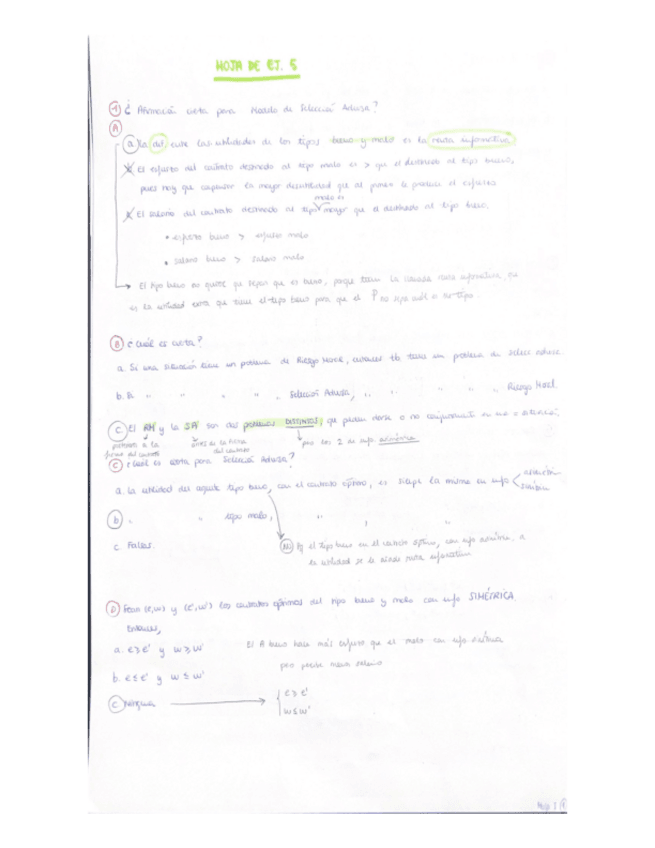 HOJA DE EJ. 5
① ¿ Afirmación cierta para Modelo de Selección Adversa?
Ⓐ
ⓐ La dif entre las utilidades de los tipos bueno y malo es la renta informativa
b. El esfuerzo del contrato destinado al tipo malo es > que el destinado al tipo bueno,
pues hay que compensar la mayor desutilidad que al primero le produce el esfuerzo
malo es
c. El salario del contrato destinado al tipo mayor que el destinado al tipo bueno.
• esfuerzo bueno > esfuerzo malo
• salario bueno > salario malo
El tipo bueno no quiere que sepan que es bueno, porque tiene la llamada renta informativa,
es la utilidad extra que tiene el tipo bueno para que el P no sepa cuál es su tipo.
Ⓑ ¿Cuál es cierta?
a. Si una situación tiene un problema de Riesgo Moral, entonces tb. tiene un problema de Selecc adversa.
b. Si " " " " Selección Adversa, " " " " Riesgo Moral.
ⓒ El RM y la SA son dos problemas DISTINTOS, que pueden darse o no conjuntamente en una situación.
posterior a la firma del contrato
antes de la firma del contrato
pero los 2 de info. asimétrica
Ⓒ ¿Cuál es cierta para Selección Adversa?
a. La utilidad del agente tipo bueno, con el contrato óptimo, es siempre la misma en info asimétrica simétrica
ⓑ " " tipo malo, " , "
c. Falsas.
el tipo bueno en el contrato óptimo, con info asimétrica, a
la utilidad se le añade renta informativa
Ⓓ Sean (e,w) y (e',w') los contratos óptimos del tipo bueno y malo con info SIMÉTRICA.
Entonces,
a. e≥e' y w≥w'
El A bueno hace más esfuerzo que el malo con info simétrica
pero percibe menor salario
b. e≤e' y w≤w'
ⓒ Ninguna → { e≥e'
w≤w'